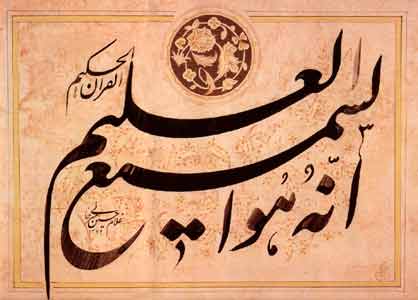 القرآن الحکیم
انّه هُوالسمیع العلیم
غلامحسین